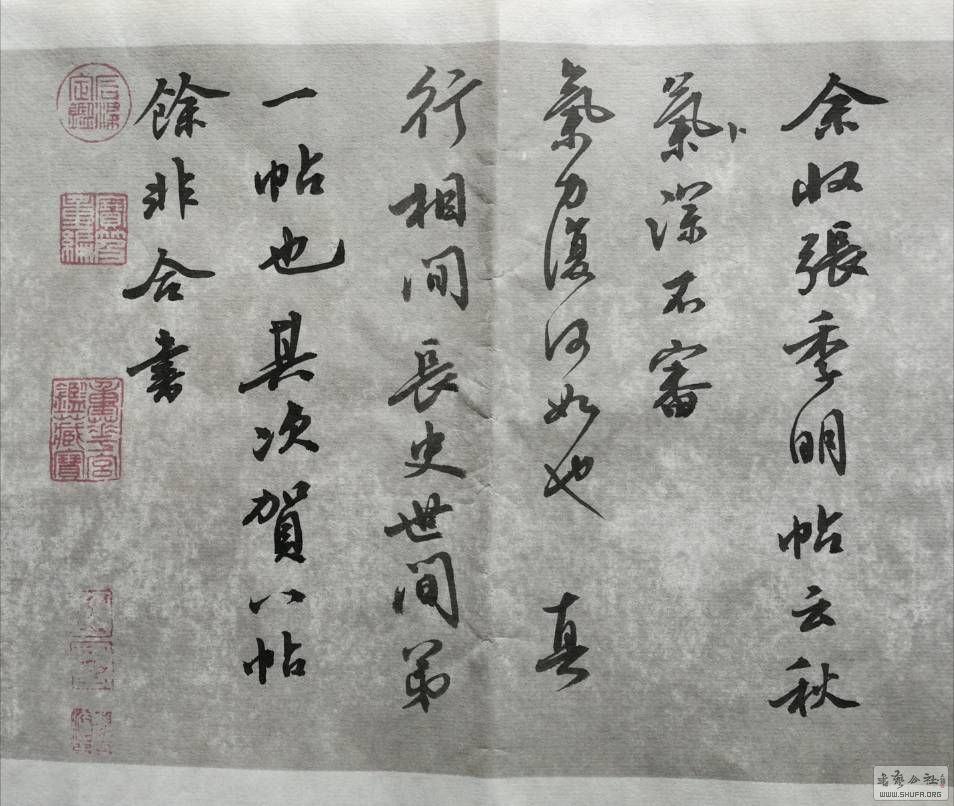 余收張季明帖云秋
氣深不審
氣力復何如也 真
行相間長史世間弟
一帖也其次賀八帖
餘非合書
石渠定鑑
寶笈重編
重華宮鑑藏寶
書藝公社
WWW.SHUFA.ORG